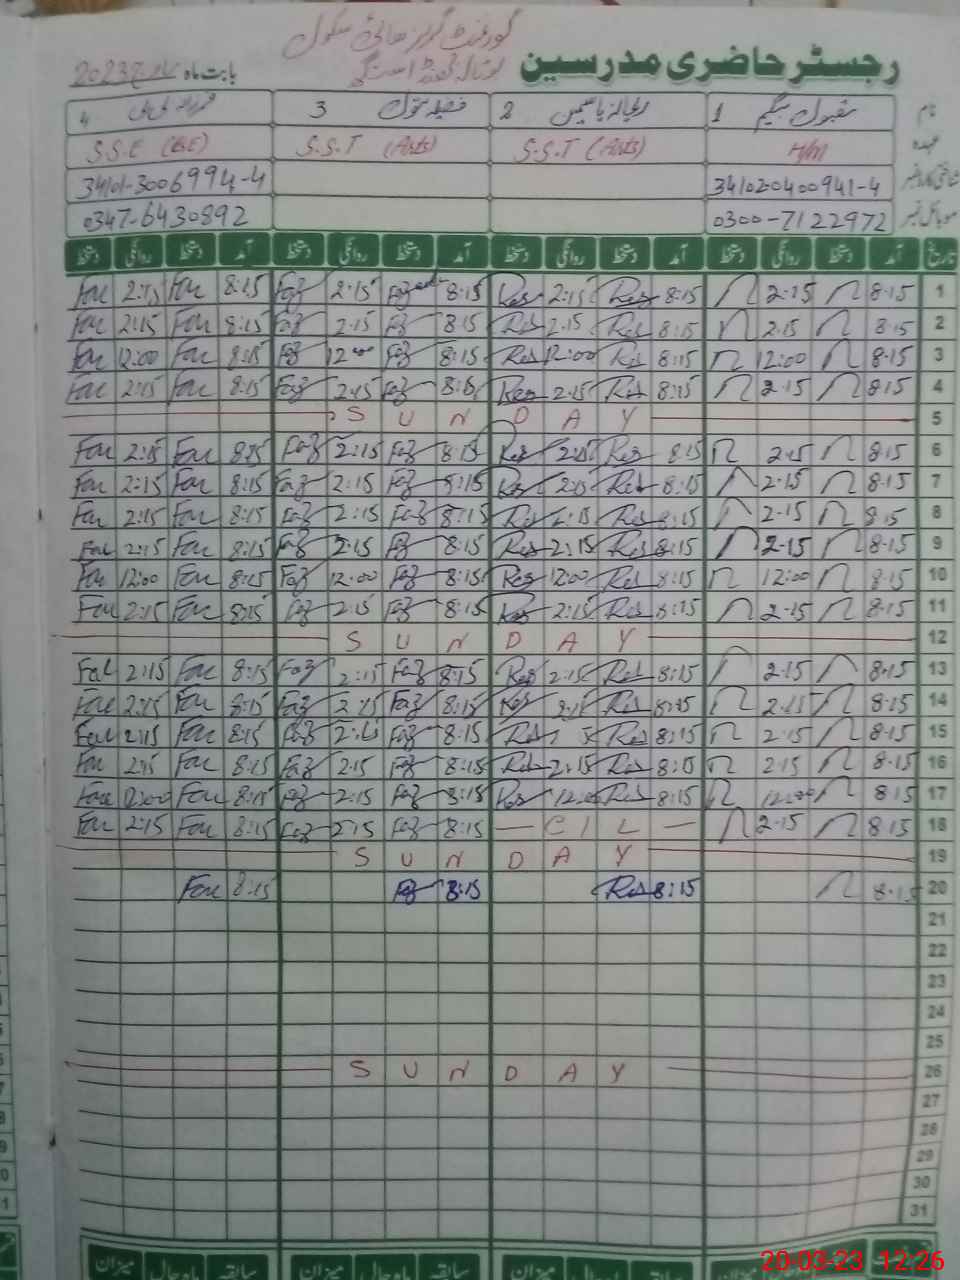 گورنمنٹ گرلز ہائی سکول
رجسٹر حاضری مدرسین
بابت ماہ مارچ 2023
نام 1 مقبول بیگم 2 ریحانہ یاسمین 3 4
عہدہ H/M S.S.T (Arts) S.S.T (Arts) S.S.E
شناختی کارڈ نمبر 34102-0400941-4 34101-3006994-4
موبائل نمبر 0300-7122972 0347-6430892
تاریخ آمد دستخط روانگی دستخط آمد دستخط روانگی دستخط آمد دستخط روانگی دستخط آمد دستخط روانگی دستخط
1 8.15 2.15 8:15 Res 2:15 Res 8:15 Faz 2:15 Faz 8:15 Far 2:15 Far
2 8.15 2.15 8:15 Res 2.15 Res 8:15 Faz 2.15 Faz 8:15 Far 2:15 Far
3 8.15 12:00 8:15 Res 12:00 Res 8:15 Faz 12:00 Faz 8:15 Far 12:00 Far
4 8.15 2.15 8:15 Res 2.15 Res 8:15 Faz 2.15 Faz 8:15 Far 2:15 Far
5 SUNDAY
6 8.15 2.15 8:15 Res 2:15 Res 8:15 Faz 2:15 Faz 8:15 Far 2:15 Far
7 8.15 2.15 8:15 Res 2:15 Res 8:15 Faz 2:15 Faz 8:15 Far 2:15 Far
8 8.15 2.15 8:15 Res 2:15 Res 8:15 Faz 2:15 Faz 8:15 Far 2:15 Far
9 8.15 2.15 8:15 Res 2:15 Res 8:15 Faz 2:15 Faz 8:15 Far 2:15 Far
10 8.15 12:00 8:15 Res 12:00 Res 8:15 Faz 12:00 Faz 8:15 Far 12:00 Far
11 8.15 2.15 8:15 Res 2:15 Res 8:15 Faz 2:15 Faz 8:15 Far 2:15 Far
12 SUNDAY
13 8.15 2.15 8:15 Res 2:15 Res 8:15 Faz 2:15 Faz 8:15 Far 2:15 Far
14 8.15 2.15 8:15 Res 2:15 Res 8:15 Faz 2:15 Faz 8:15 Far 2:15 Far
15 8.15 2.15 8:15 Res Res 8:15 Faz 2:15 Faz 8:15 Far 2:15 Far
16 8.15 2.15 8:15 Res 2:15 Res 8:15 Faz 2:15 Faz 8:15 Far 2:15 Far
17 8.15 12:00 8:15 Res 12:00 Res 8:15 Faz 2:15 Faz 8:15 Far 12:00 Far
18 8.15 2.15 — C/L — 8:15 Faz 2:15 Faz 8:15 Far 2:15 Far
19 SUNDAY
20 8.15 8:15 Res 8:15 Faz 8:15 Far
21
22
23
24
25
26 SUNDAY
27
28
29
30
31
سابقہ میزان سابقہ میزان سابقہ میزان سابقہ میزان
20-03-23 12:26